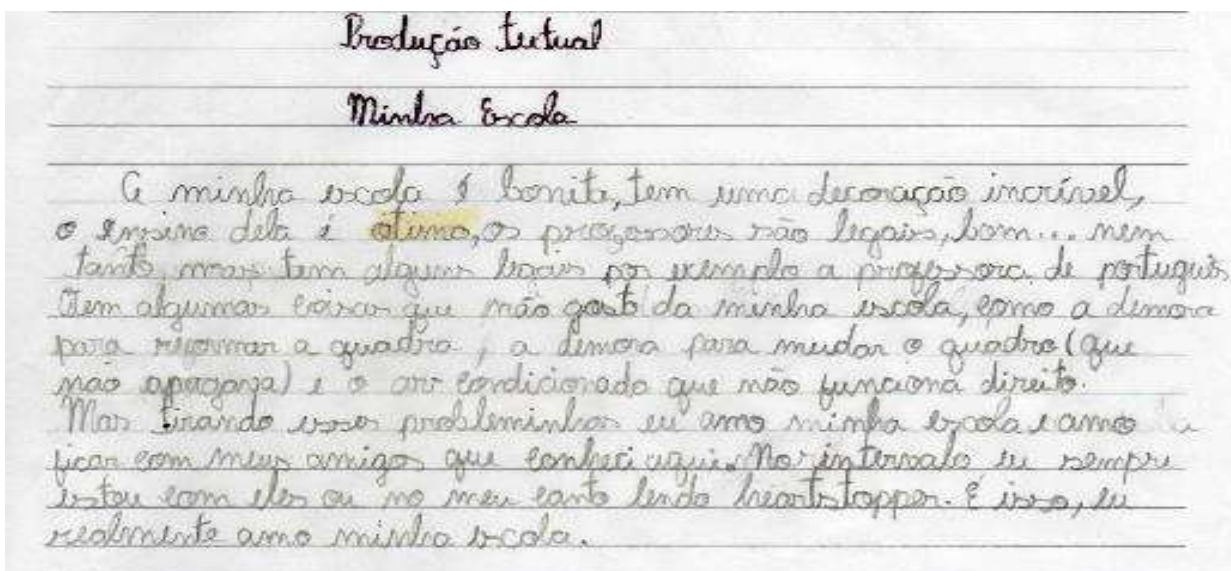 Produção textual
Minha Escola
A minha escola é bonita, tem uma decoração incrível,
o ensino dela é ótimo, os professores são legais, bom... nem
tanto, mas tem alguns legais por exemplo a professora de português
Tem algumas coisas que não gosto da minha escola, como a demora
para reformar a quadra, a demora para mudar o quadro (que
não apagava) e o ar condicionado que não funciona direito.
Mas tirando esses probleminhas eu amo minha escola e amo
ficar com meus amigos que conheci aqui. No intervalo eu sempre
estou com eles ou no meu canto lendo heartstopper. É isso, eu
realmente amo minha escola.